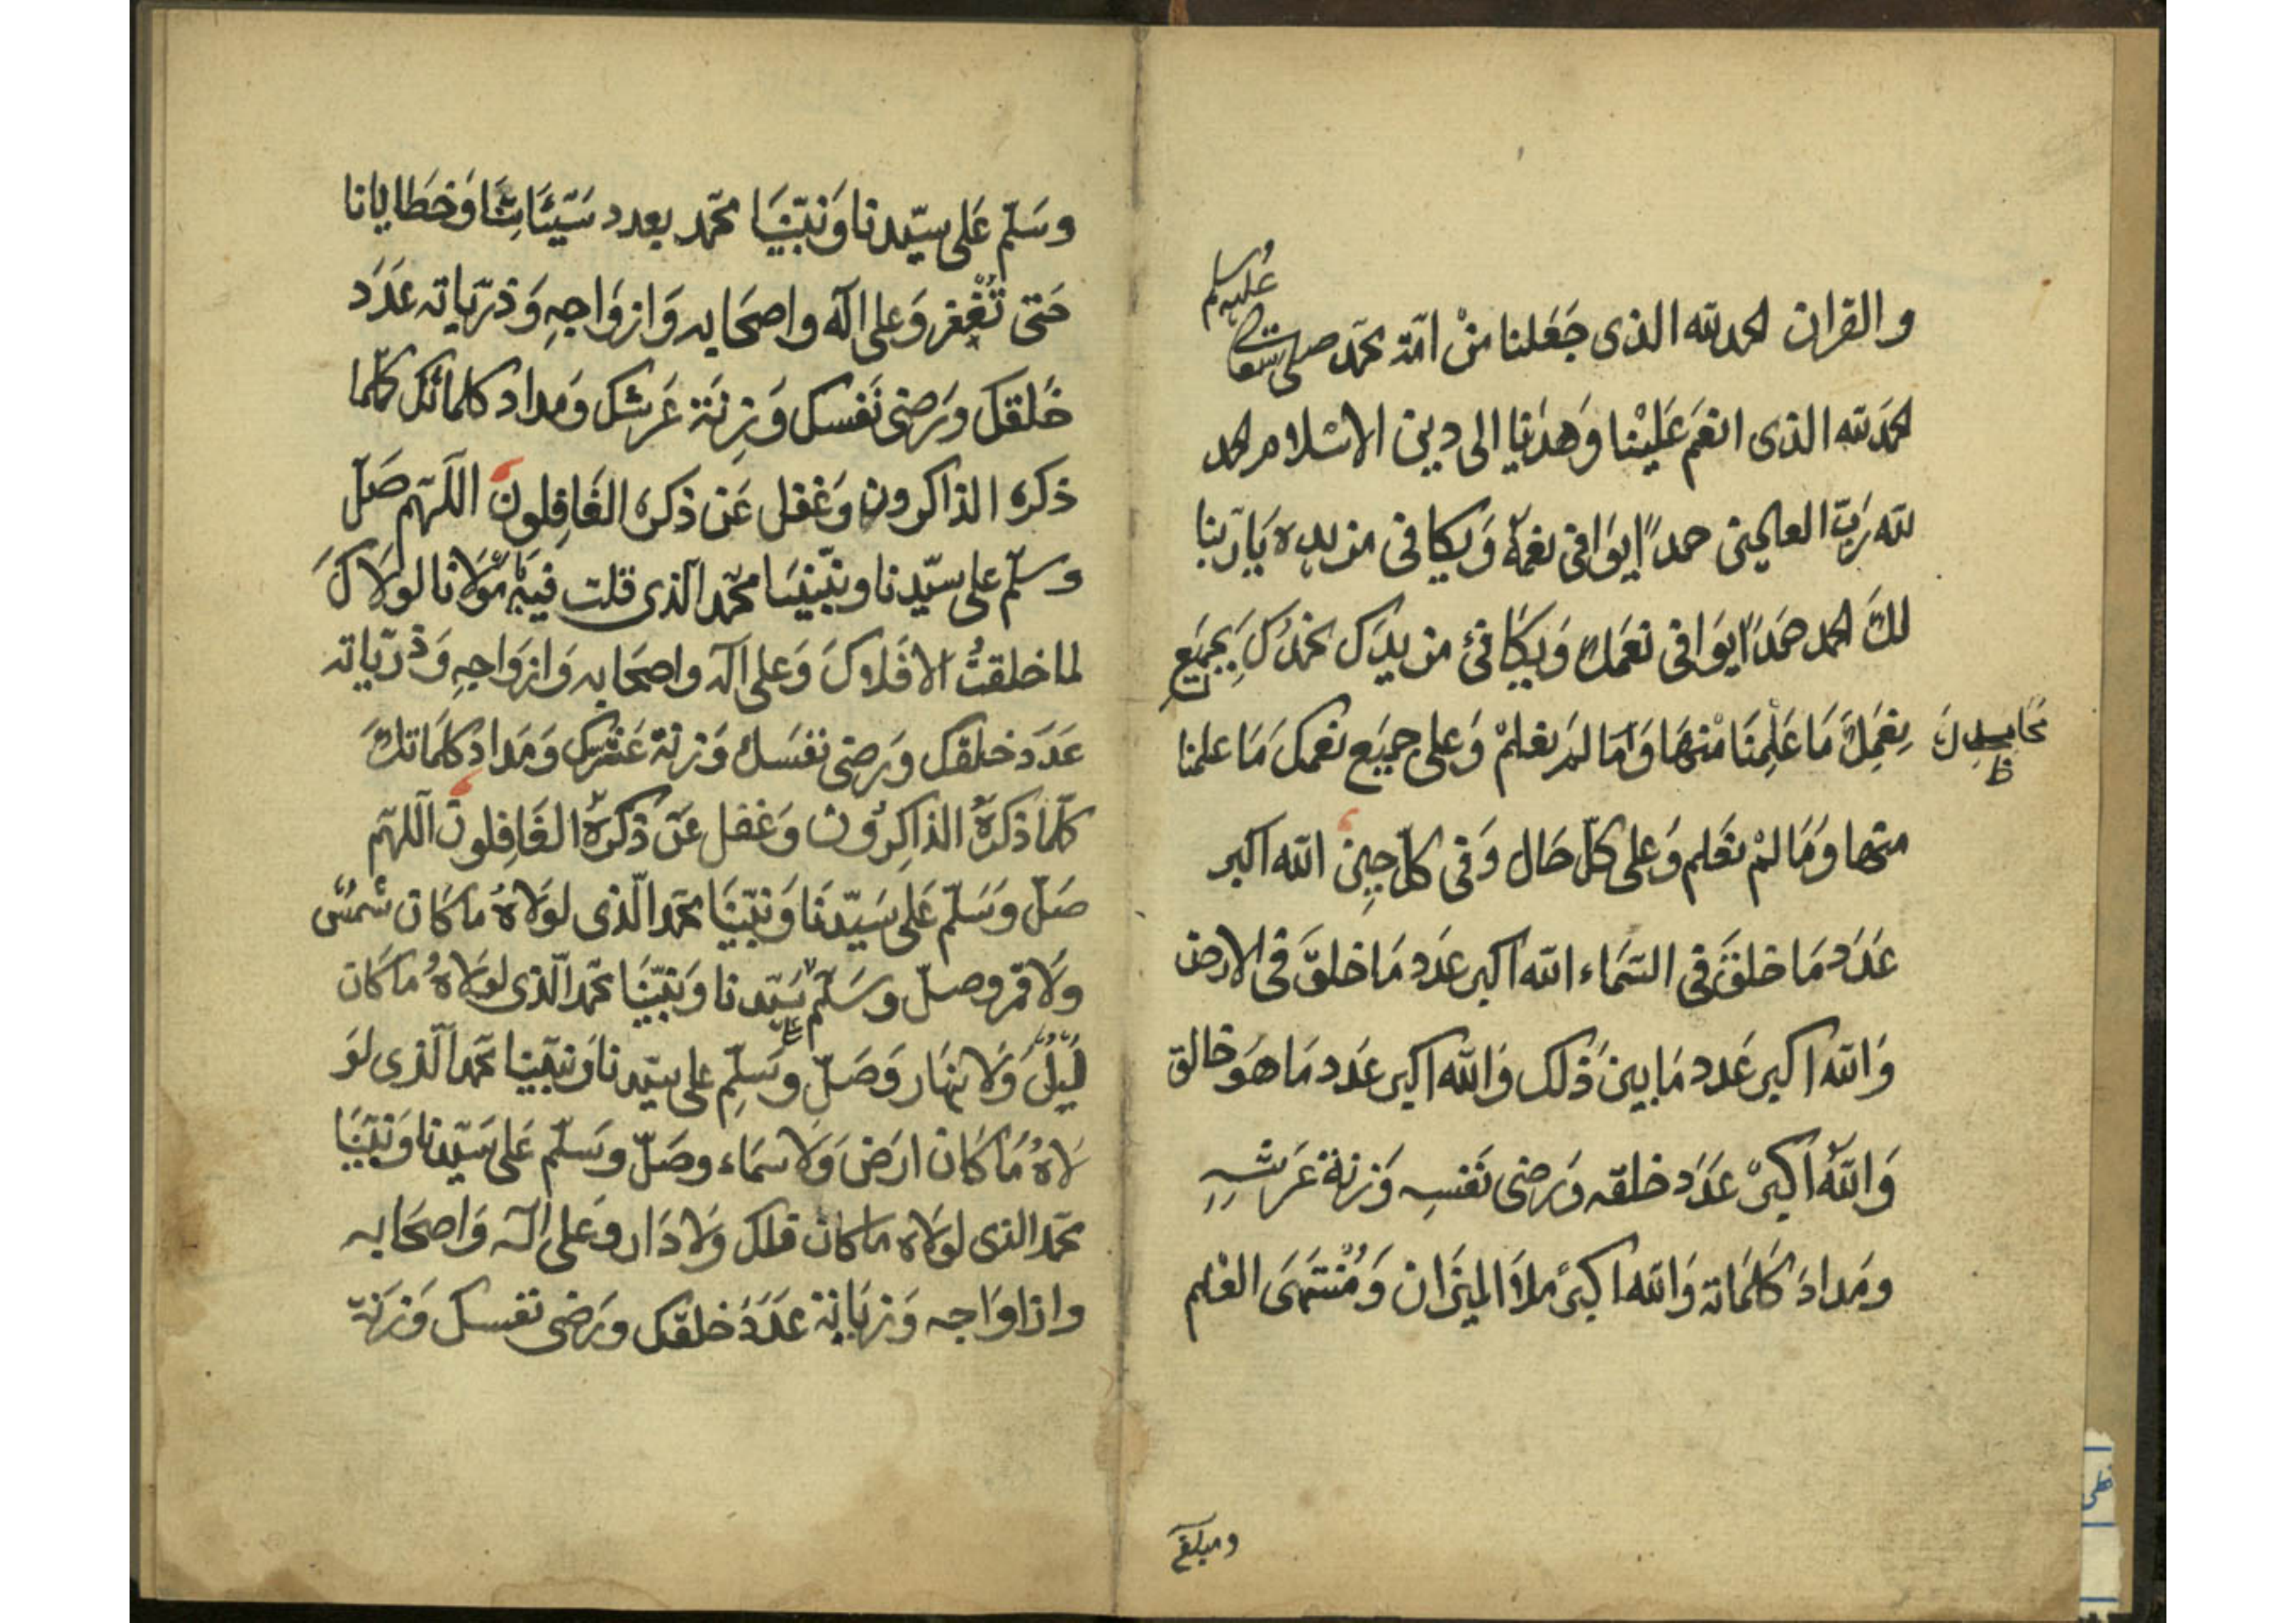 والقران الحمد لله الذى جَعَلنا مِنْ امّة محمّد صلى الله تعالى عليه وسلم
الحمَد لله الذى انعَم عَلَيْنا وَهدٰنا الى دين الاسْلام الحمد
لله رَبّ العالمين حمدًا يوَافى نعمَهُ وَيكافى مزيده يَا رَبّنا
لكَ الحمد حَمَدًا يوَافى نعَمَكَ وَيكَافئ مزيدَك نحمَدُكَ بجمَيع
محَامِدِكَ
نِعَمِكَ مَا عَلِمنَا مْنهَا وَمَا لمَ نعْلمْ وَعلى جميَع نعَمكَ مَا علمنا
منها وَمَا لمْ نعَلم وَعلى كلّ حَال وَفى كلّ حِينٍ الله اكبر
عَدَد مَا خلقَ فى السّمَاء الله اكبر عدَد مَا خلقَ فى الارض
وَالله اكبر عَدد مَا بينَ ذٰلك وَالله اكبر عَدَد مَا هوَ خالق
وَاللهُ اكبَرْ عَدَد خلقه وَرضى نَفسِه وَزنة عَرَشهِ
ومَدادَ كلَمَاته وَالله اكبَرُ ملأَ الميزَان وَمُنْتهَىَ العْلم
ومبلغَ
وسَلّم عَلى سيّدنا وَنبيّنَا محمّد بعدد سَيّئَاتِنَا وَخطَايانا
حَتى تُغْفر وَعلى اله واصحَابه وَازوَاجهِ وَذرّياته عَدَد
خَلقكَ ورَضى نَفسكَ وَزِنَة عَرشكَ وَمدادَ كلماتكَ كلّما
ذكرهُ الذاكرون وَغفل عَن ذكرهُ الغَافِلون اللّهمّ صَلّ
وسلّم على سيّدنا ونبيّنَا محمّد الّذى قلت فيهِ مَوْلَانا لولَاكَ
لما خلقتُ الافَلاكَ وَعلى اله واصحَابه وَازوَاجهِ وَذرّياته
عَدَد خلقكَ وَرضى نفسَك وَزنة عَرشكَ وَمَدادَ كلمَاتكَ
كلّما ذكرَهُ الذاكِرُون وَغفل عَن ذكرهُ الغَافِلونَ اللّهمّ
صَلّ وَسَلّم عَلى سَيّدنَا وَنبيّنَا محمّد الّذى لولَاهُ مَا كَان شَمسٌ
وَلَا قمَر وصلّ وسَلّم على سَيّدنا وَنبيّنَا محمّد الّذى لولَاهُ مَا كَان
لَيلٌ وَلَا نهَار وَصَلّ وسَلِّم على سيّدنا وَنبيّنا محمّد الّذى لوَ
لَاهُ مَا كَانَ ارَض وَلَا سمَاء وصَلّ وسَلّم عَلى سَيّدنا وَنبيّنَا
محمّد الذى لولَاه ما كان فلك وَلَا دَار وعَلى اله وَاصحَابه
وازاوَاجه وَزبَانِة عَدَدَ خلقكَ ورَضى نفسكَ وَزَنَة